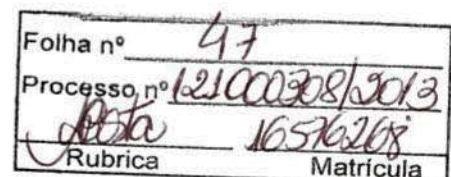 Folha nº 47
Processo nº 121000308/2013
16576268
Rubrica Matrícula